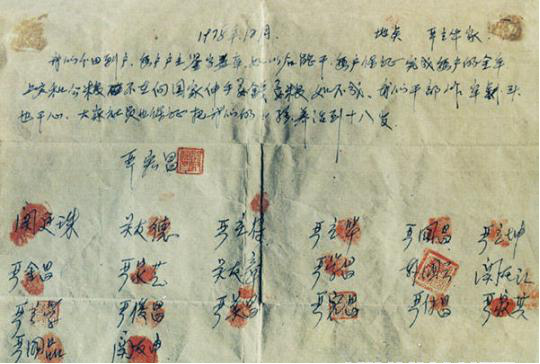 1978年12月 地点 严立华家
我们分田到户，每户户主签字盖章，如以后能干，每户保证完成每户的全年
上交和公粮 不在向国家伸手要钱要粮 如不成，我们干部作牢剎头
也干心，大家社员也保证把我们的小孩养活到十八岁。
严宏昌
关廷珠 关友德 严立付 严立华 严国昌 严立坤
严金昌 严家芝 关友章 严学昌 韩国云 关友江
严立学 严俊昌 严美昌 严宏昌 严付昌 严家其
严国品 关友申